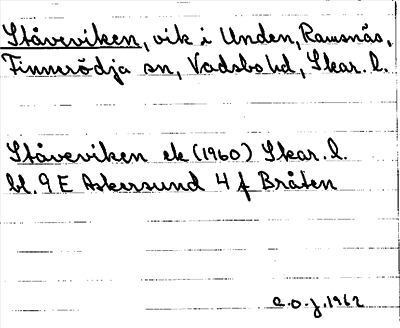 Ståveviken, vik i Unden, Ramsnäs,
Finnerödja sn, Vadsbo hd, Skar. l.
Ståveviken ek (1960) Skar. l.
bl. 9 E Askersund 4 f Bråten
C.O.J. 1962